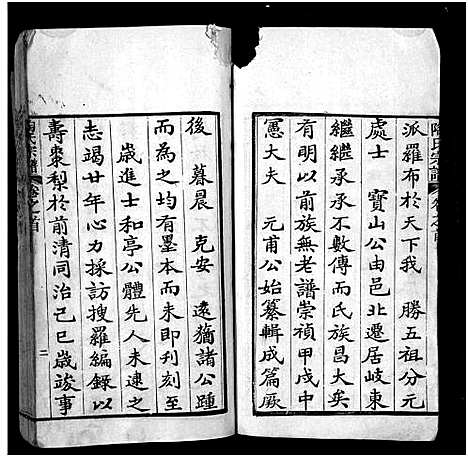 派羅布於天下我 勝五祖分元
處士 寶山公由邑北遷居岐東
繼繼承承不數傳而氏族昌大矣
有明以前族無老譜崇禎甲戌中
憲大夫 元甫公始纂輯成篇厥
後 暮晨 克安 遠猶諸公踵
而為之均有墨本而未即刊刻至
歲進士和亭公體先人未逮之
志竭廿年心力採訪搜羅編錄以
壽棗梨於前清同治己巳歲竣事
二